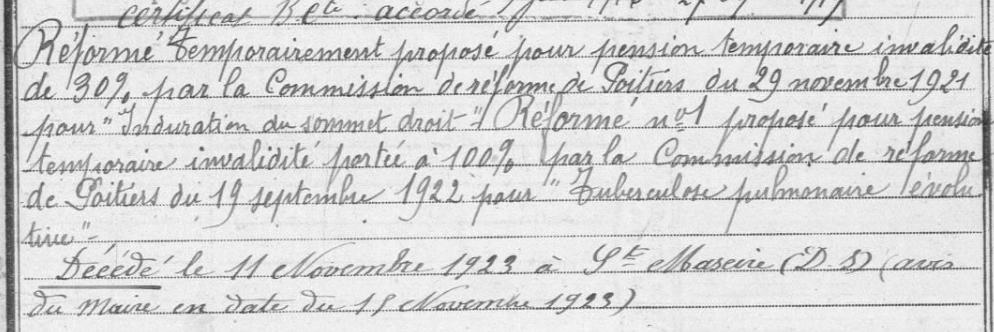 certificat accordé
Réformé temporairement proposé pour pension temporaire invalidité
de 30% par la Commission de réforme de Poitiers du 29 novembre 1921
pour "Induration du sommet droit" Réformé n°1 proposé pour pension
temporaire invalidité portée à 100% par la Commission de réforme
de Poitiers du 19 septembre 1922 pour "Tuberculose pulmonaire évolu-
tive"-
Décédé le 11 Novembre 1923 à Ste (D.S) (avis
du Maire en date du Novembre 1923)